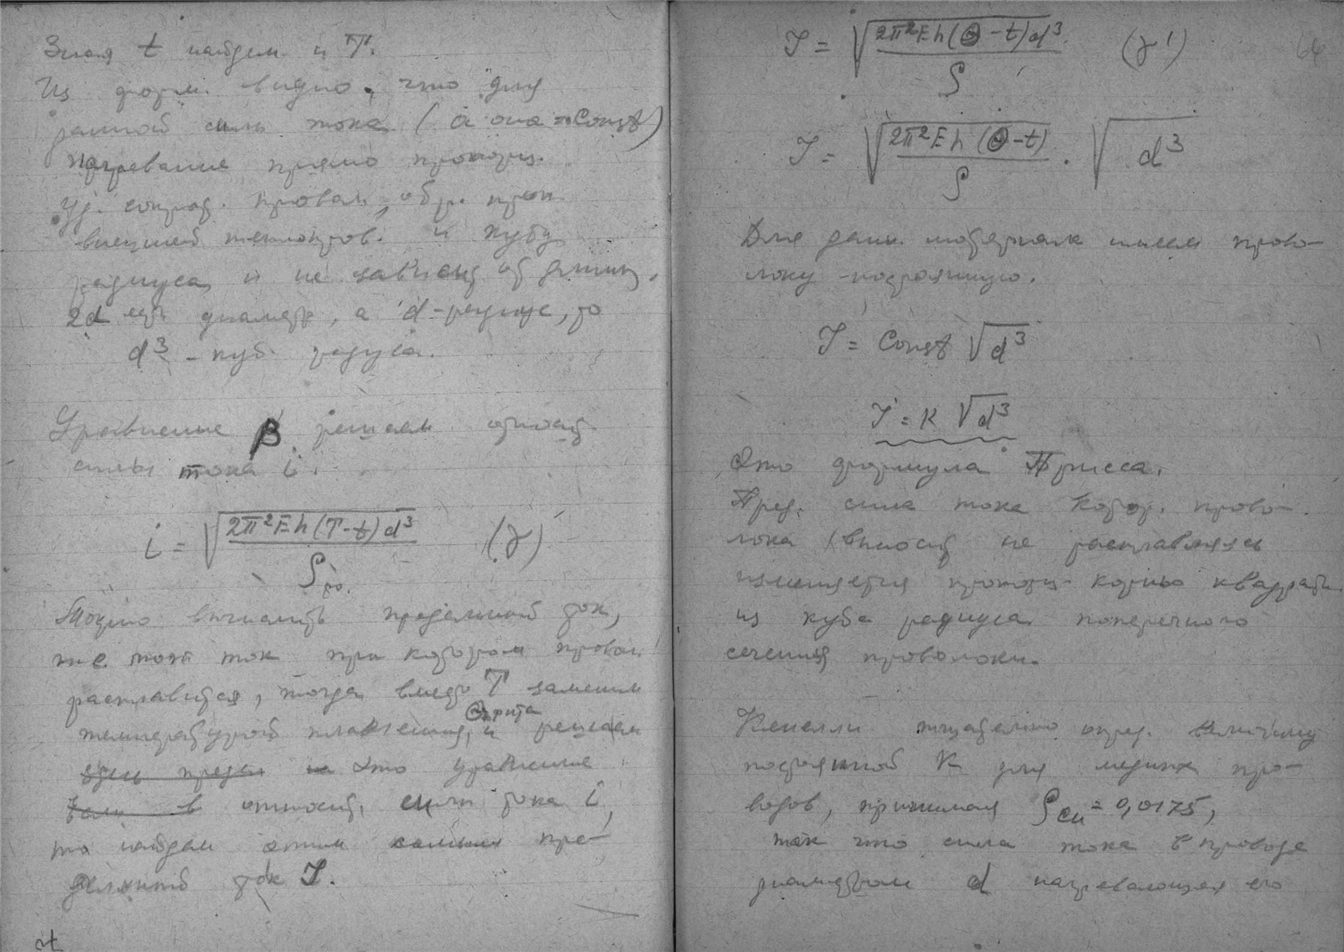 Зная t найдем и T.
Из форм. видно, что для
данной силы тока (а она = Const)
нагревание прямо пропорц.
уд. сопрот. провол., обр. проп.
внешней теплопров. и кубу
радиуса и не зависит от длины.
2d есть диаметр, а d - радиус, то
d³ - куб. радиуса.
Уравнение β решаем относит.
силы тока i.
i = √(2π²Eh(T-t)d³ / ρ) (γ)
Можно вычислить предельный ток,
т.е. такой ток при котором провол.
расплавится, тогда вместо T заменим
температурой плавления, и решаем
это уравнение
относит. силы тока i,
то найдем этим самым пре-
дельный ток J.
J = √(2π²Eh(Θ-t)d³ / ρ) (γ')
64
J = √(2π²Eh(Θ-t) / ρ) · √d³
Для данн. материала имеем прово-
локу постоянную.
J = Const √d³
J = K √d³
Это формула Приса.
Пред. сила тока котор. прово-
лока выносит не расплавляясь
изменяется пропорц. корню квадратн.
из куба радиуса поперечного
сечения проволоки.
Кенелли тщательно опред. величину
постоянной K для медных про-
водов, принимая ρcu = 0,0175,
так что сила тока в проводе
диаметром d нагревающая его